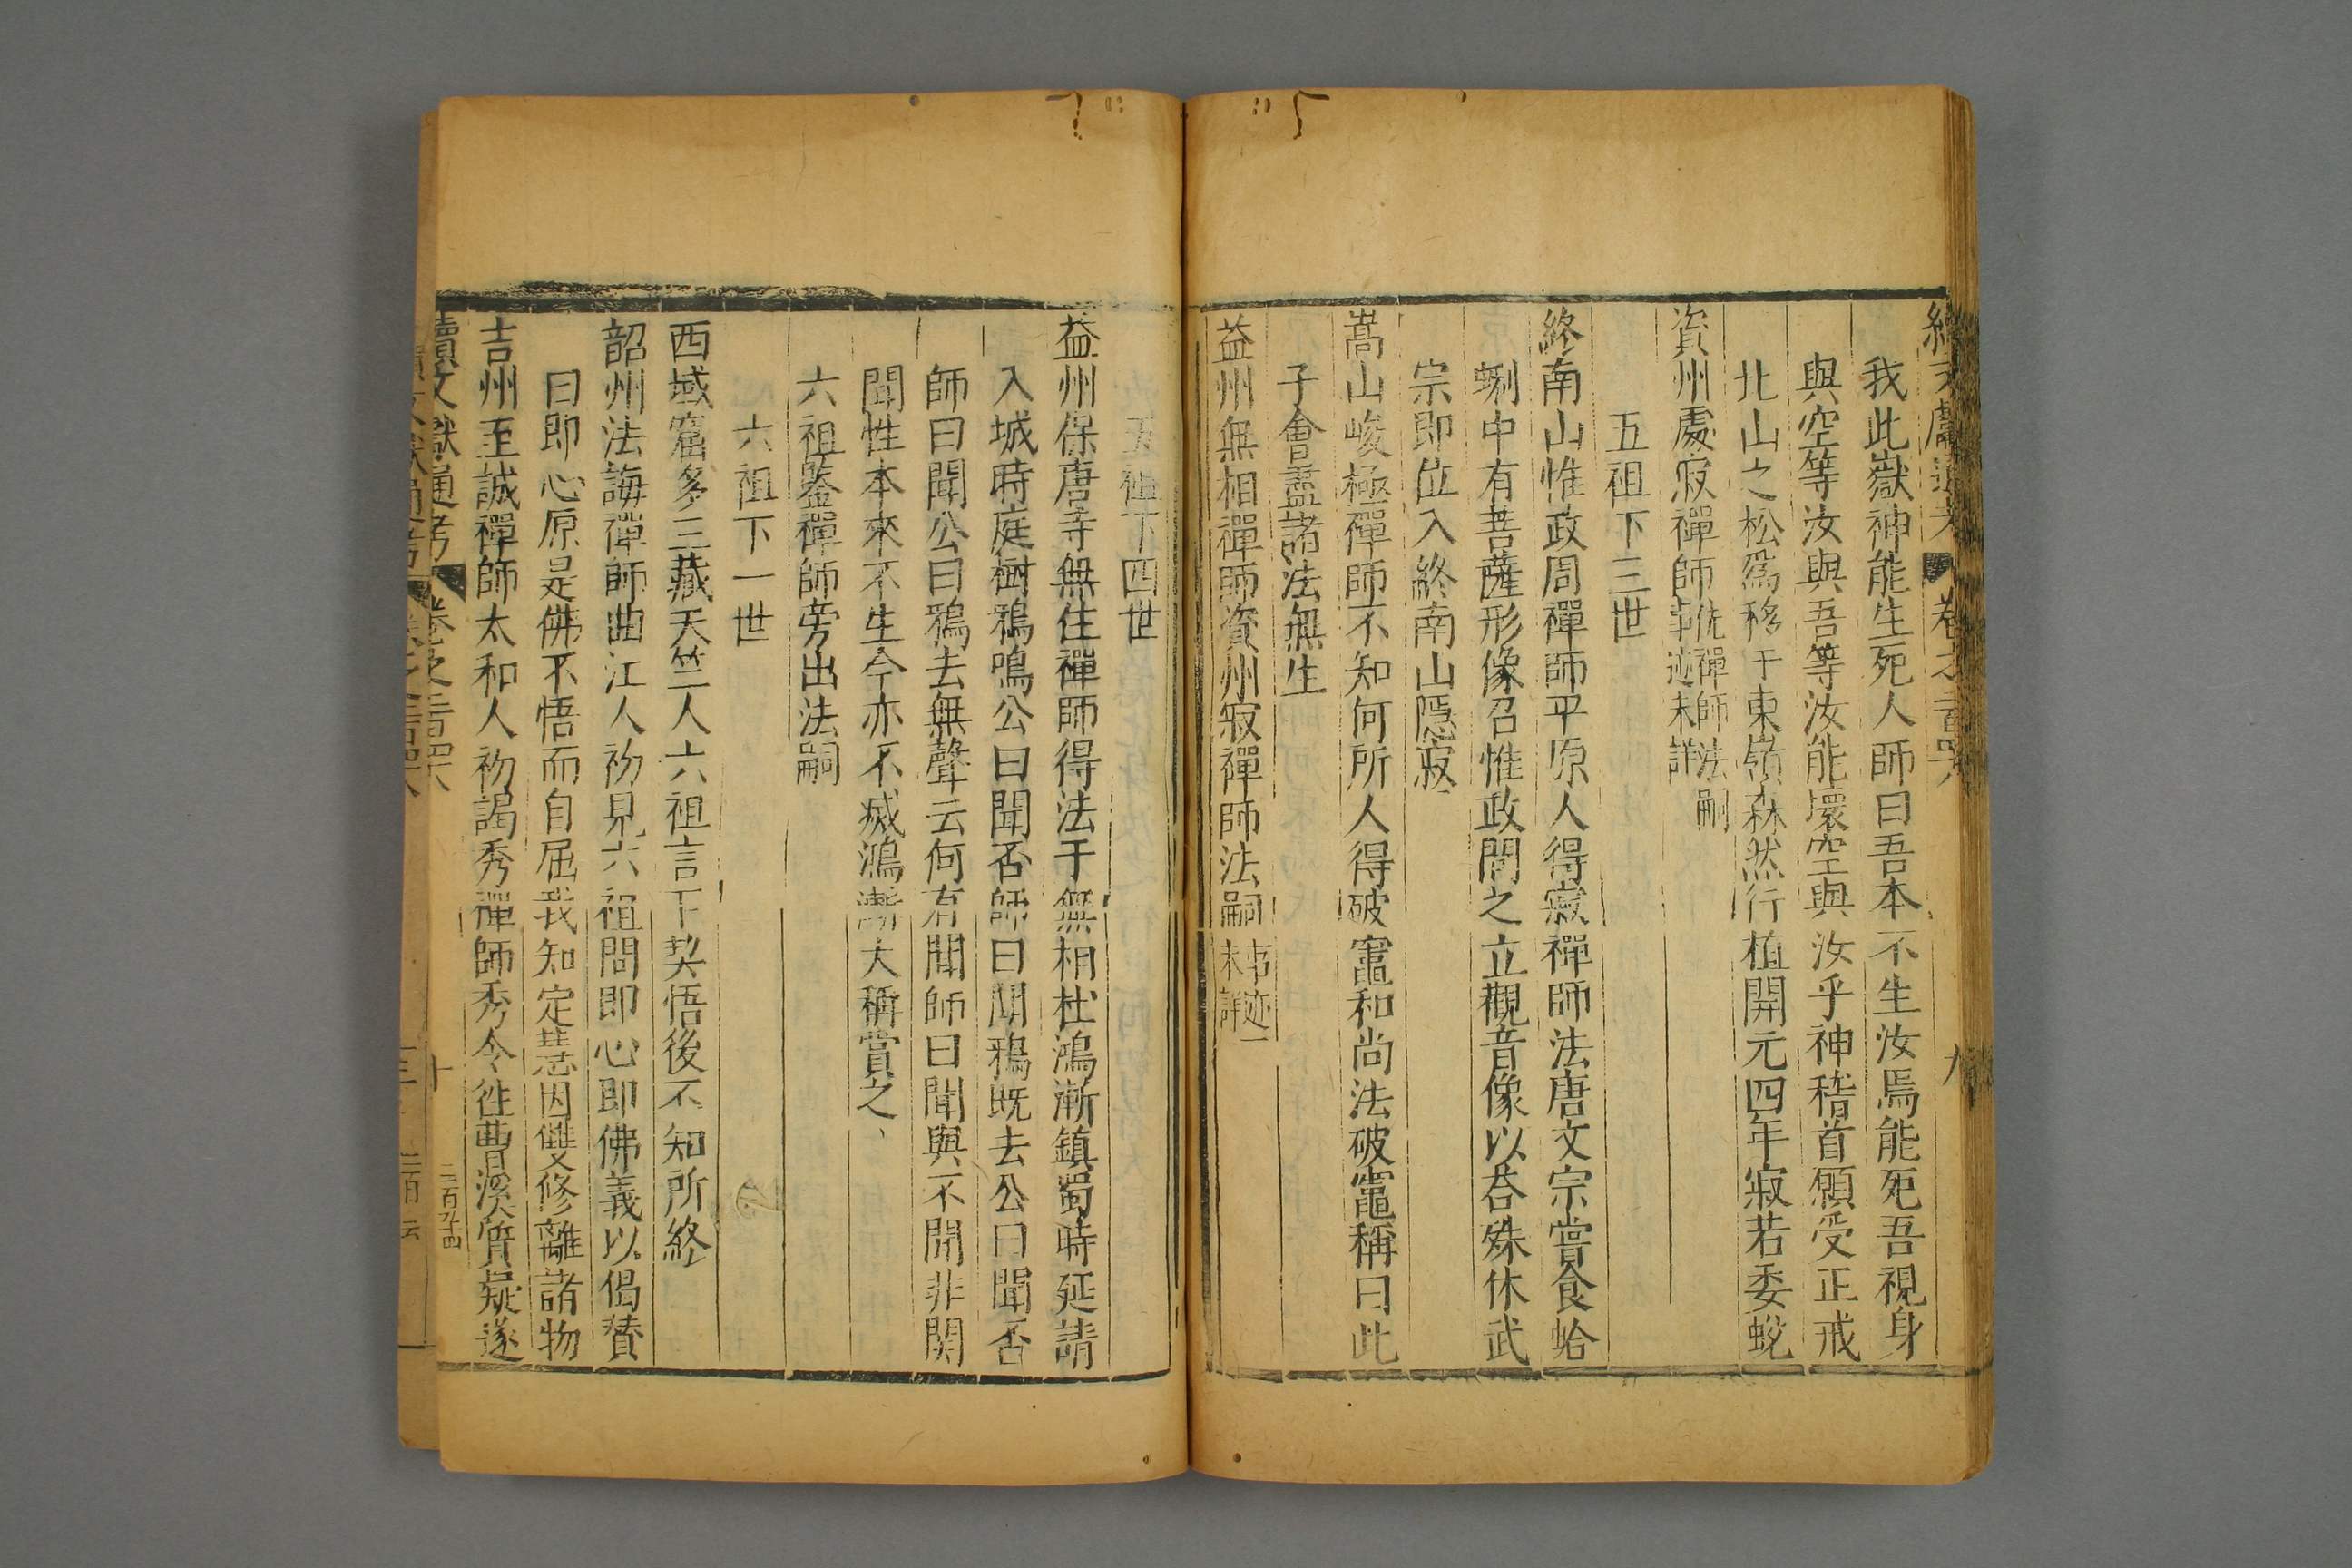 續文獻通考 卷之二百四六 九
我此嶽神能生死人師曰吾本不生汝焉能死吾視身
與空等汝與吾等汝能壞空與汝乎神稽首願受正戒
北山之松爲移于東嶺森然行植開元四年寂若委蛻
資州處寂禪師詵禪師法嗣事迹未詳
五祖下三世
終南山惟政周禪師平原人得寂禪師法唐文宗嘗食蛤
蜊中有菩薩形像召惟政問之立觀音像以荅殊休武
宗即位入終南山隱寂
嵩山峻極禪師不知何所人得破竈和尚法破竈稱曰此
子會盡諸法無生
益州無相禪師資州寂禪師法嗣事迹未詳
五祖下四世
益州保唐寺無住禪師得法于無相杜鴻漸鎮蜀時延請
入城時庭樹鴉鳴公曰聞否師曰聞鴉既去公曰聞否
師曰聞公曰鴉去無聲云何有聞師曰聞與不聞非關
聞性本來不生今亦不滅鴻漸大稱賞之
六祖鑒禪師旁出法嗣
六祖下一世
西域窟多三藏天竺人六祖言下契悟後不知所終
韶州法海禪師曲江人初見六祖問即心即佛義以偈賛
曰即心原是佛不悟而自屈我知定慧因雙修離諸物
吉州至誠禪師太和人初謁秀禪師秀令徃曹溪質疑遂
續文獻通考 卷之二百四六 十 三百九十四